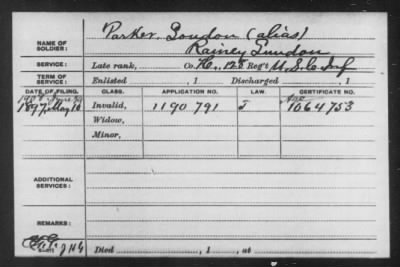 NAME OF SOLDIER: Parker, Goudon (alias)
Rainey Gundon
SERVICE: Late rank, Co. H., 125 Reg't U.S.C. Inf
TERM OF SERVICE: Enlisted , 1 Discharged , 1
DATE OF FILING. CLASS. APPLICATION NO. LAW. CERTIFICATE NO.
1897, May 10 Invalid, 1190 791 1064753
Widow,
Minor,
ADDITIONAL SERVICES:
REMARKS:
Died , 1 , at